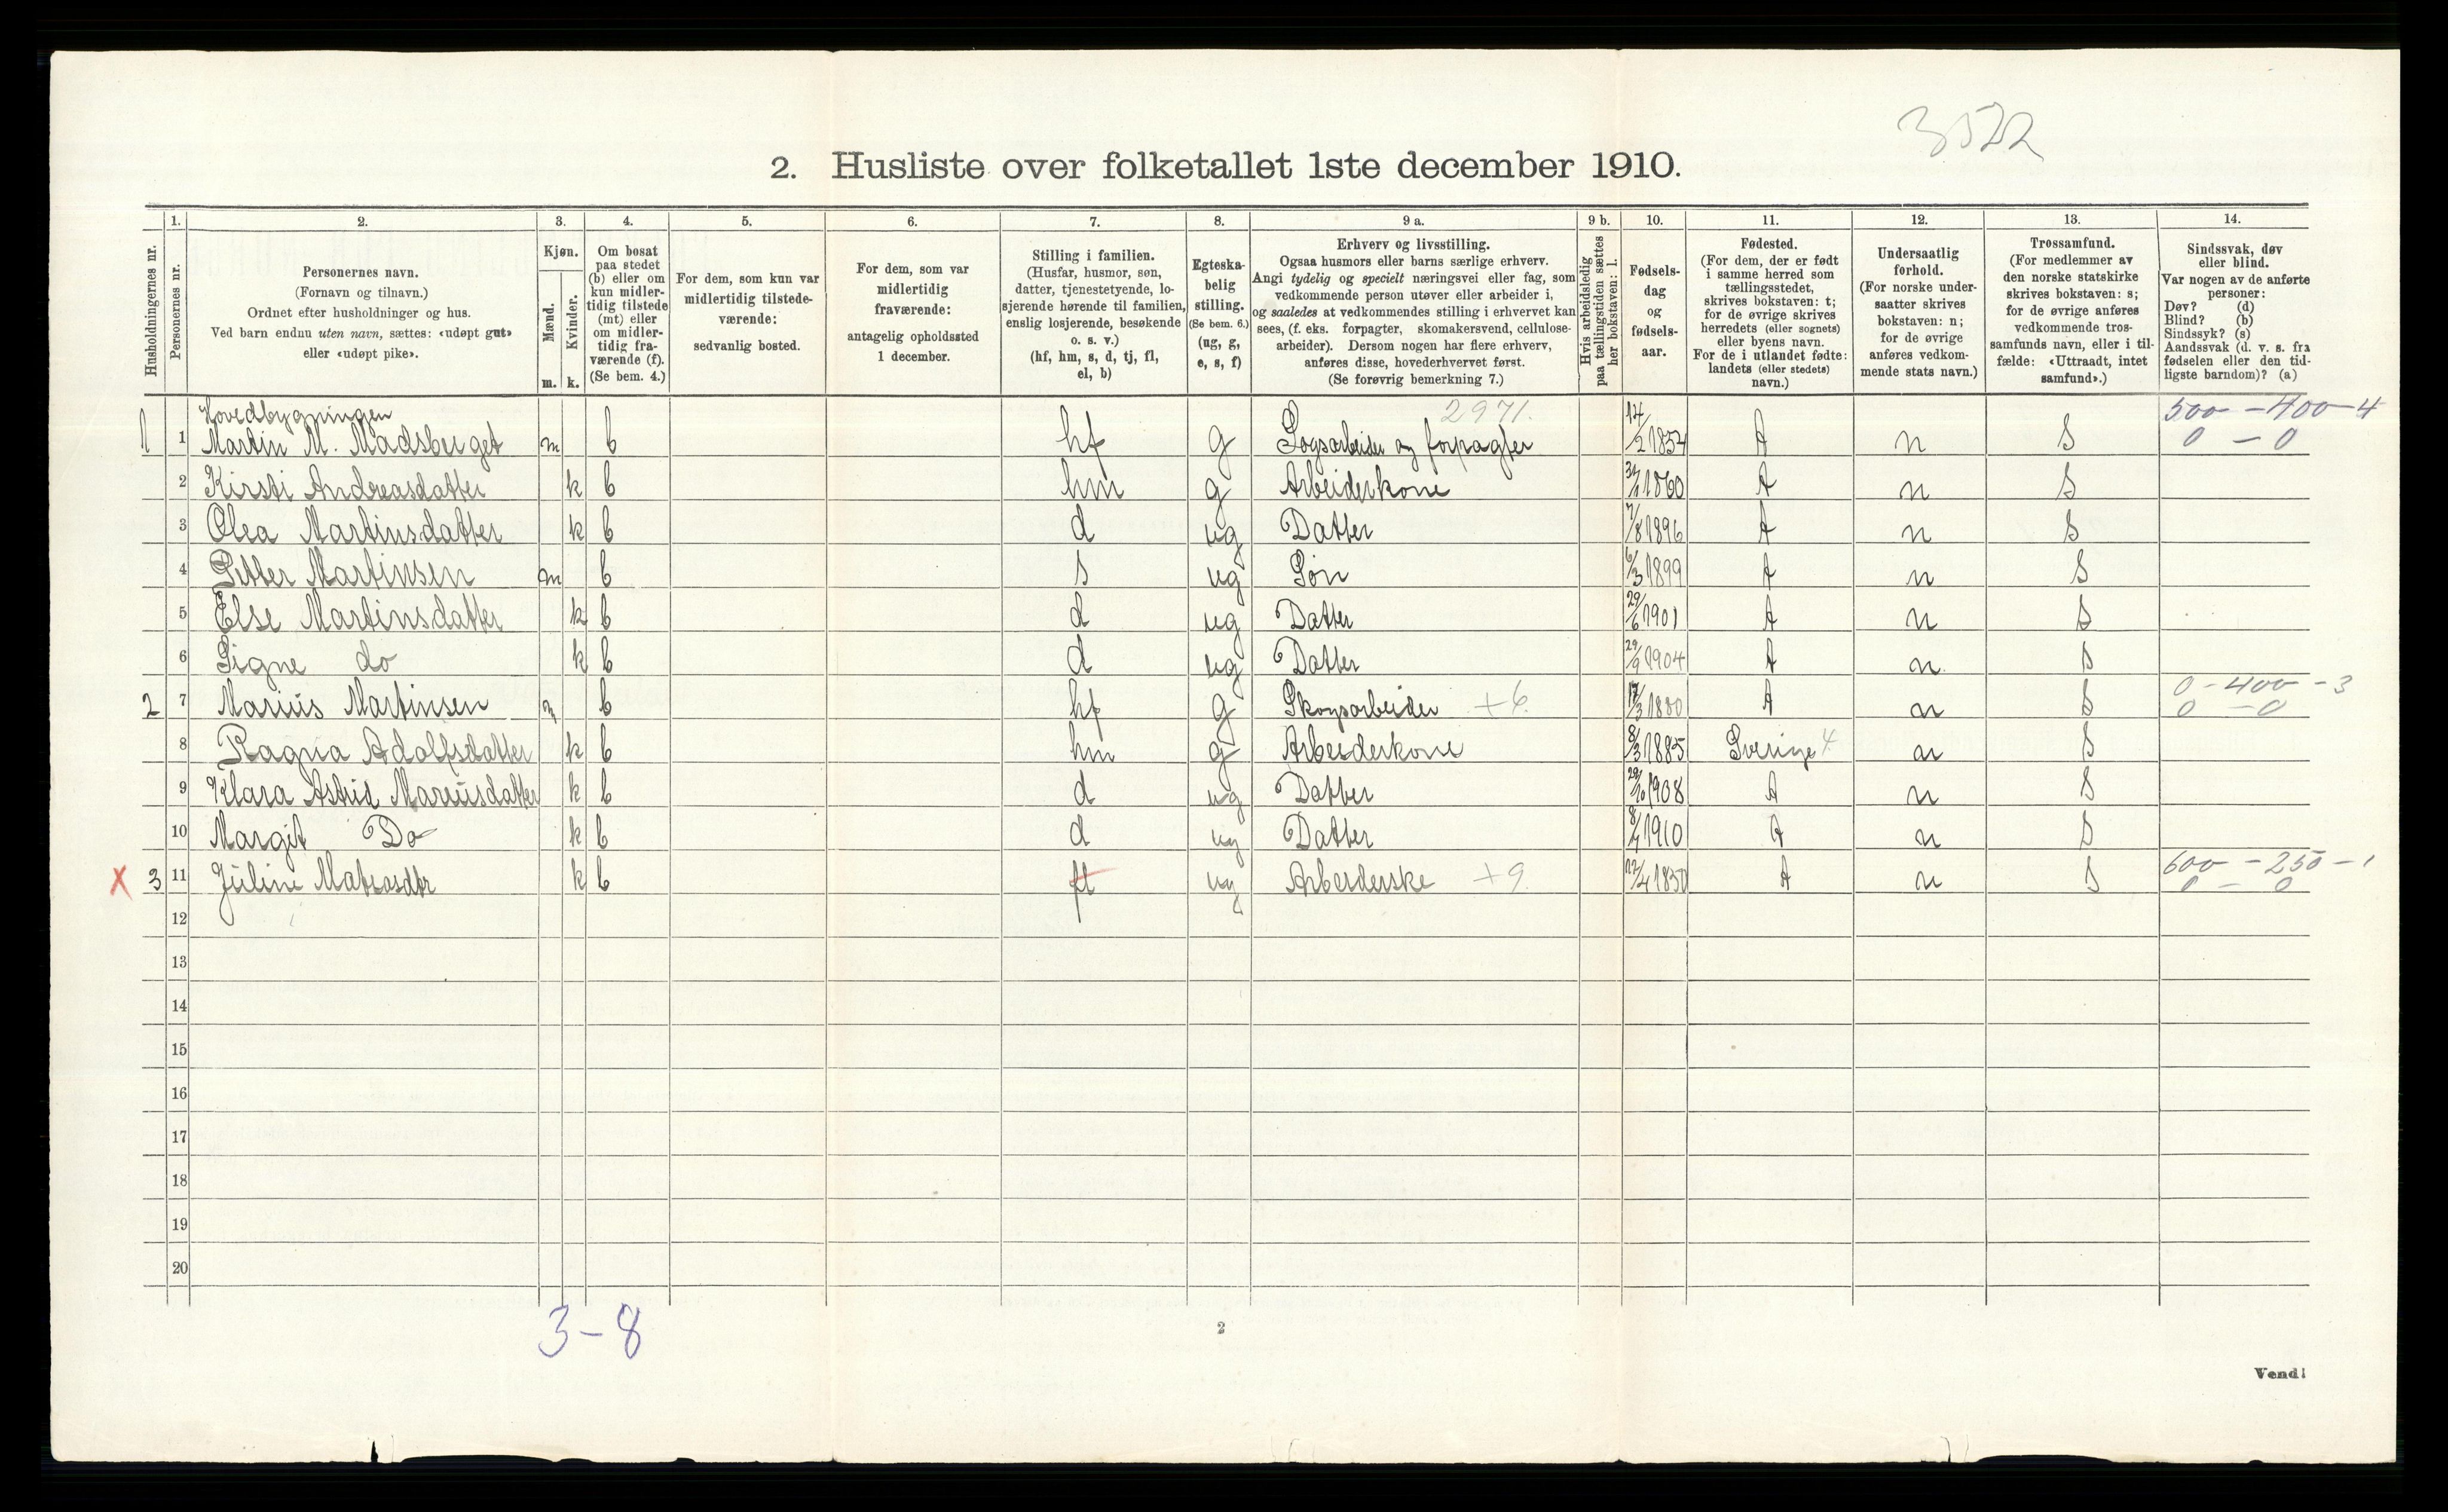 3522
2. Husliste over folketallet 1ste december 1910.
Husholdningernes nr.
1. Personernes nr.
2. Personernes navn. (Fornavn og tilnavn.) Ordnet efter husholdninger og hus. Ved barn endnu uten navn, sættes: «udøpt gut» eller «udøpt pike».
3. Kjøn. Mænd. m. Kvinder. k.
4. Om bosat paa stedet (b) eller om kun midlertidig tilstede (mt) eller om midlertidig fraværende (f). (Se bem. 4.)
5. For dem, som kun var midlertidig tilstedeværende: sedvanlig bosted.
6. For dem, som var midlertidig fraværende: antagelig opholdssted 1 december.
7. Stilling i familien. (Husfar, husmor, søn, datter, tjenestetyende, losjerende hørende til familien, enslig losjerende, besøkende o. s. v.) (hf, hm, s, d, tj, fl, el, b)
8. Egteskabelig stilling. (Se bem. 6.) (ug, g, e, s, f)
9 a. Erhverv og livsstilling. Ogsaa husmors eller barns særlige erhverv. Angi tydelig og specielt næringsvei eller fag, som vedkommende person utøver eller arbeider i, og saaledes at vedkommendes stilling i erhvervet kan sees, (f. eks. forpagter, skomakersvend, cellulosearbeider). Dersom nogen har flere erhverv, anføres disse, hovederhvervet først. (Se forøvrig bemerkning 7.)
9 b. Hvis arbeidsledig paa tællingstiden sættes her bokstaven: l.
10. Fødselsdag og fødselsaar.
11. Fødested. (For dem, der er født i samme herred som tællingsstedet, skrives bokstaven: t; for de øvrige skrives herredets (eller sognets) eller byens navn. For de i utlandet fødte: landets (eller stedets) navn.)
12. Undersaatlig forhold. (For norske undersaatter skrives bokstaven: n; for de øvrige anføres vedkommende stats navn.)
13. Trossamfund. (For medlemmer av den norske statskirke skrives bokstaven: s; for de øvrige anføres vedkommende trossamfunds navn, eller i tilfælde: «Uttraadt, intet samfund».)
14. Sindssvak, døv eller blind. Var nogen av de anførte personer: Døv? (d) Blind? (b) Sindssyk? (s) Aandssvak (d. v. s. fra fødselen eller den tidligste barndom)? (a)
Hovedbygningen 2971. 500 - 400 - 4
1 1 Martin M. Madsberget m b hf g Sogsarbeider og forpagter 14/2 1852 t n s 0 - 0
2 Kirsti Andreasdatter k b hm g Arbeiderkone 1860 t n s
3 Olea Martinsdatter k b d ug Datter 7/8 1896 t n s
4 Petter Martinsen m b s ug Søn 6/3 1899 t n s
5 Else Martinsdatter k b d ug Datter 29/6 1901 t n s
6 Signe do k b d ug Datter 29/9 1904 t n s
2 7 Marius Martinsen m b hf g Skogsarbeider +6. 17/3 1880 t n s 0 - 400 - 3 0 - 0
8 Ragna Adolfsdatter k b hm g Arbeiderkone 8/3 1885 Sverige 4. n s
9 Klara Astrid Mariusdatter k b d ug Datter 29/10 1908 t n s
10 Margit Do k b d ug Datter 8/4 1910 t n s
X 3 11 Juline Mateasdtr k b ug Arbeiderske +9. 1850 t n s 600 - 250 - 1 0 - 0
12
13
14
15
16
17
18
19
20
3-8
2
Vend!